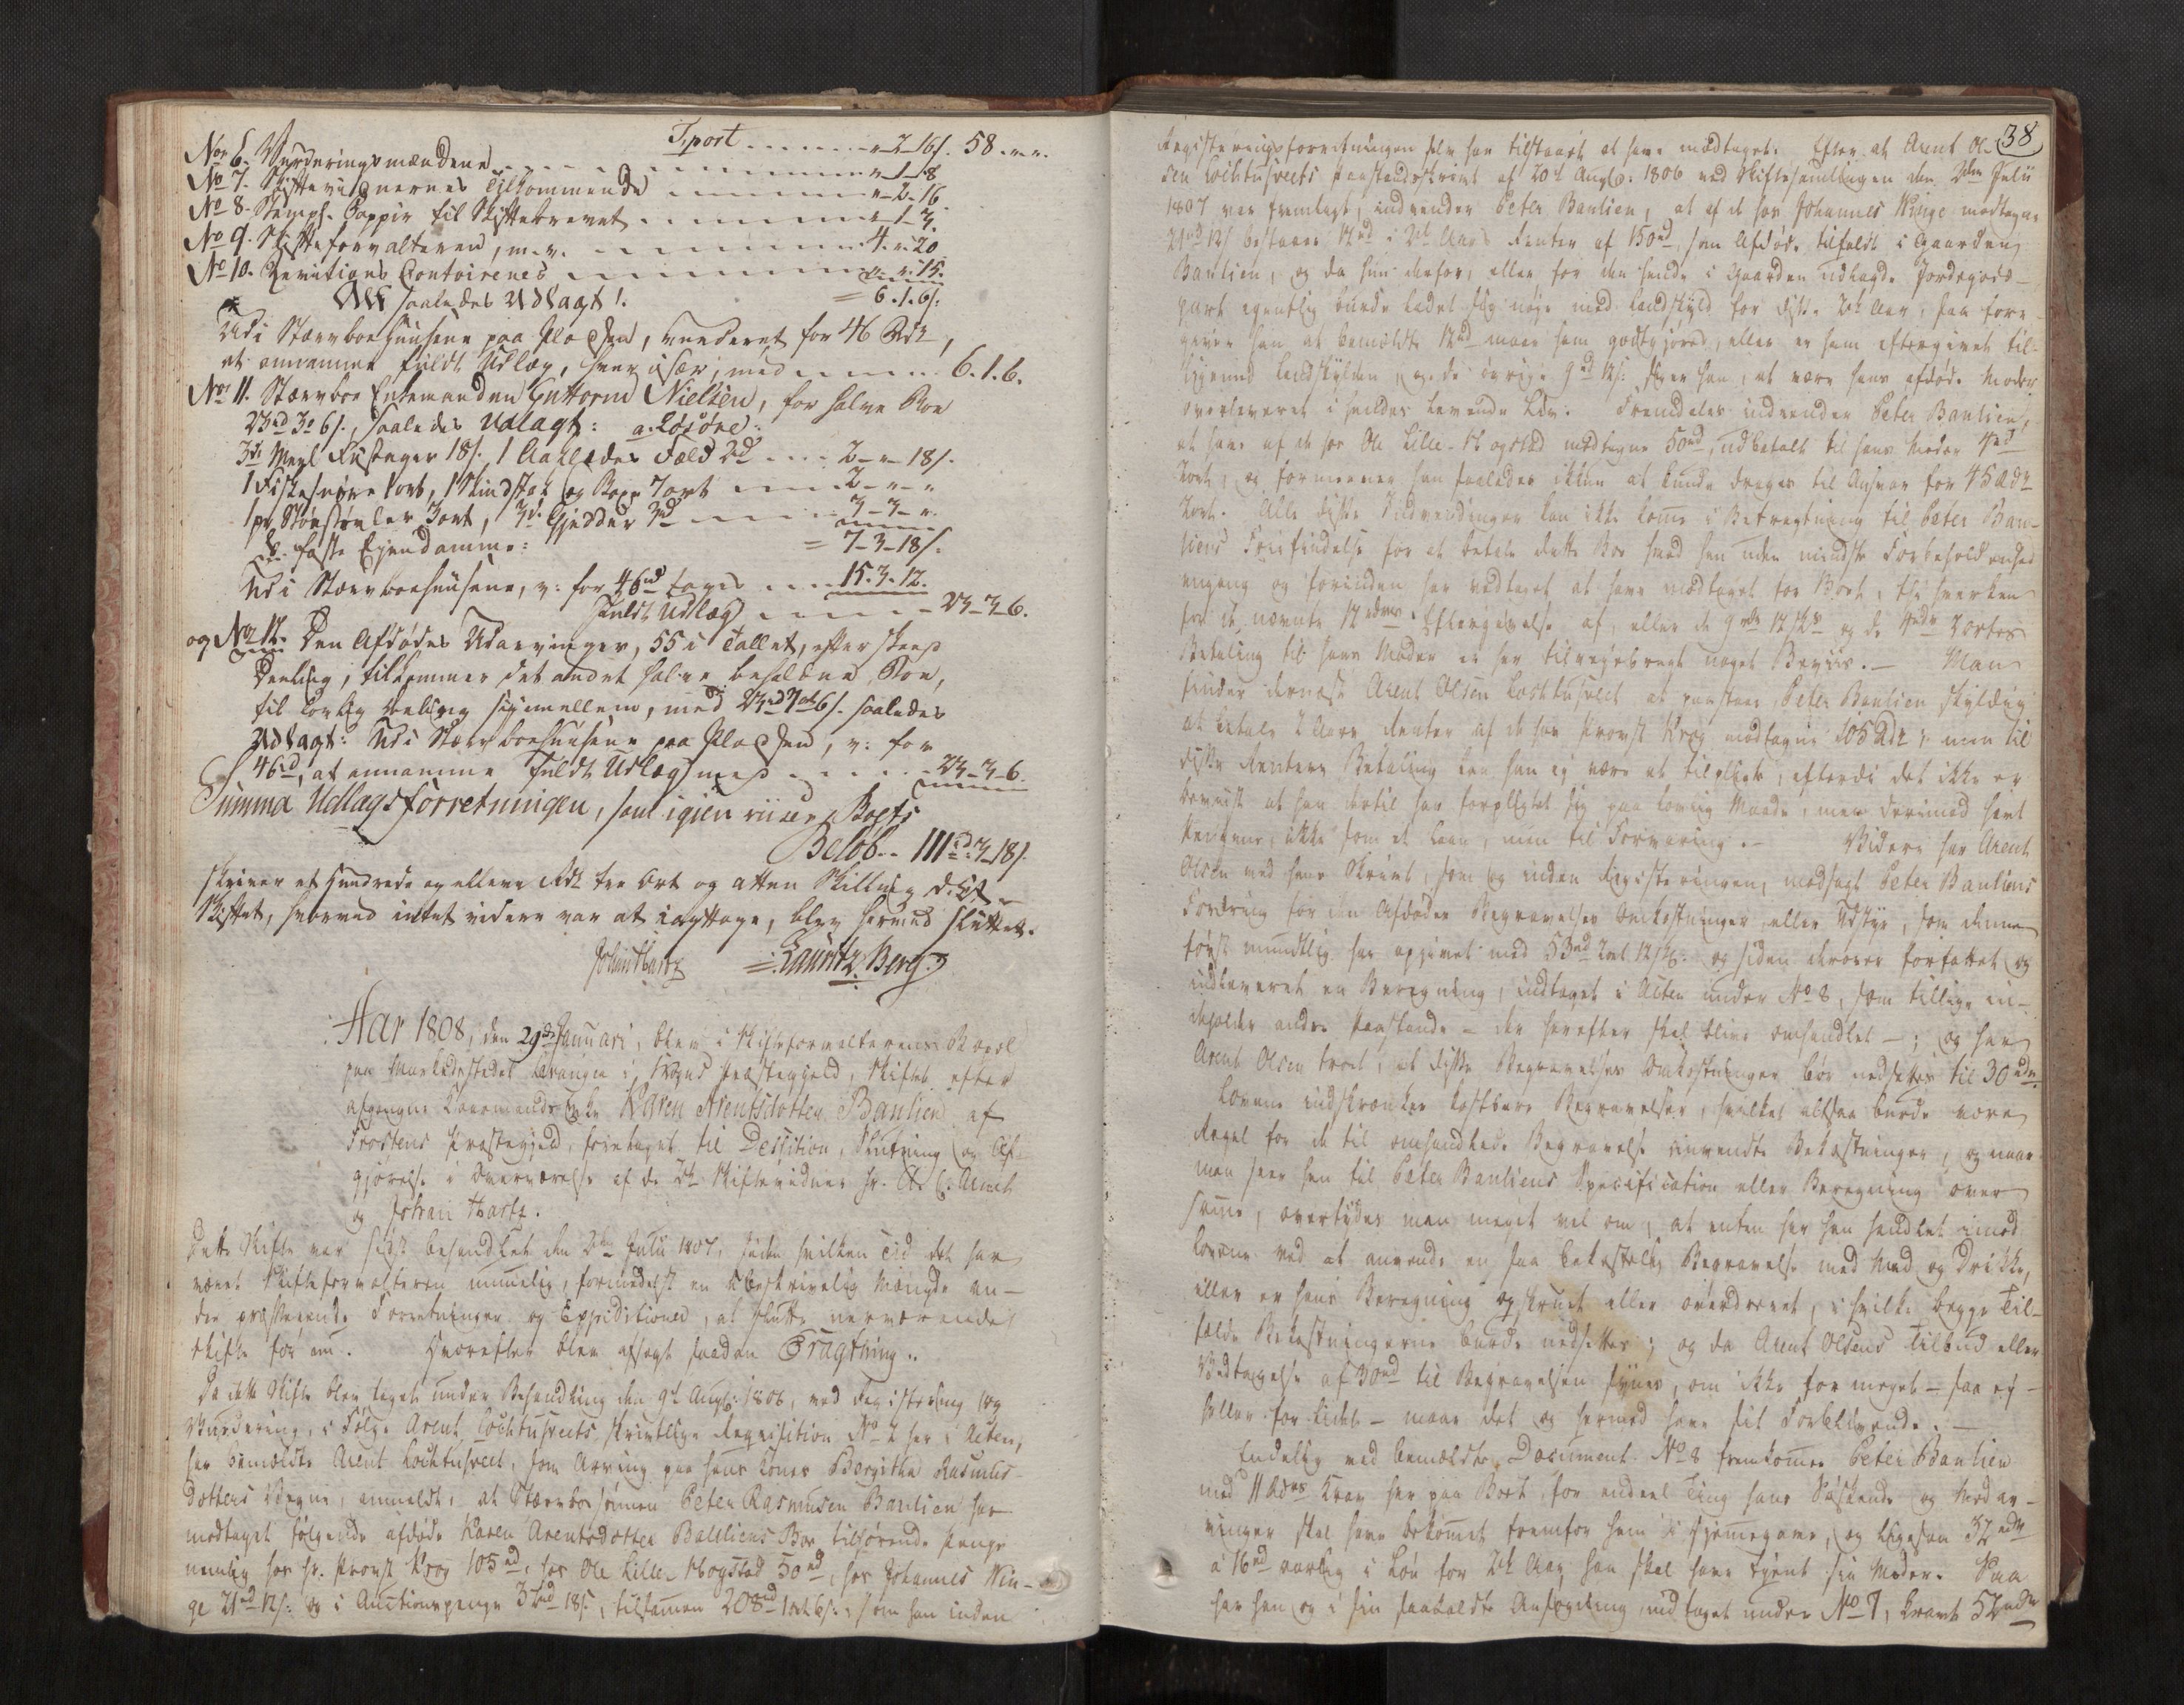 Tport . . . . . . . „ 2 16/. 58. „ „.
Nor 6. Vurderingsmændene . . . . . „ 1 „ 8
No 7. Skiftevidnernes Tilkommende . . . . „ 2. 16.
No 8. Stempl. Pappir til Skiftebrevet . . . . „ 1. 3.
No 9. Skifteforvalteren, m. v. . . . . . 4. „ 20
No 10. Revitions Contoirenes . . . . . „ „ 15.
Alt saaledes Udlagt!. = 6. 1. 6/.
Udi Stærvboehuusene paa Pladsen, vurderet for 46 Rdr,
at annamme fuldt Udlæg, hver især, med . . . . 6. 1. 6.
Nor 11. Stærvboe Enkemanden Guttorm Nielsen, for halve Boe
23rd 3o 6/., saaledes Udlagt: a. Løsøre:
2 „ „ 18/.
1 Fiskesnøre 1 ort, 1 Skindstak og 7 ort . . . 2 „ „ „
1 pr Støvler 3 ort, 3 3rd . . . 3 „ 3 „ „
b. faste Ejendomme: = 7 „ 3 „ 18/.
Udi Stærvboehuusene, v: for 46rd . . . 15. 3. 12.
Fuldt Udlæg . . . . 23 „ 3 „ 6.
og Nor 12. Den Afdødes Udarvinger, 55 i Tallet, efter skeed
Deeling, tilkommer det andet halve beholdne Boe,
til lovlig Deeling sigimellem, med 23rd 3ort 6/. saaledes
Udlagt: Udi Stærvboehuusene paa Pladsen, v: for
46rd, at annamme Fuldt Udlæg med . . . . 23 „ 3 „ 6.
Summa Udlagsforretningen, som igien viiser Boets
Beløb . . 111rd 3 „ 18/.
skriver et hundrede og elleve Rdr tre Ort og atten Skilling d. C.
Skiftet, hvorved intet videre var at iagttage, blev hermed sluttet.
Johan Hartz Lauritz Berg
Aar 1808, den 29de Januari, blev i Skifteforvalterens Bopæl
paa Markedsstedet Levanger i Skogns Præstegjeld, Skiftet efter
afgangne Enke Karen Arentsdotter Baulien af
Frostens Præstegjeld, foretaget til Decision, Slutning og Af-
gjørelse i Overværelse af de 2de Skiftevidner Hr. Arnet
og Johan Hartz.
Dette Skifte var sidst behandlet den 2den Julii 1807, siden hvilken Tid det har
været Skifteforvalteren umuelig, formedelst en ubeskrivelig Mængde an-
dre præsserende Forretninger og Expeditioner, at slutte nærværende
Skifte før nu. Hvorefter blev afsagt saadan Eragtning.
Da dette Skifte blev taget under Behandling den 9de Augts: 1806, ved Registering og
Vurdering, i Følge Arent Lochtusveets skrivtlige Requisition No 2 her i Acten,
har bemældte Arent Lochtusveet, som Arving paa hans Kones Bergithe Rasmus-
dotters Vegne, anmeldt, at Stærvboe sønnen Peter Rasmusen Baulien har
modtaget følgende afdøde Karen Arentsdotter Bauliens Boe tilhørende Penge
nemlig hos Hr. Provst Krog 105rd, hos Ole Lille-Mogstad 50rd, hos Johannes Win-
ge 21rd 12/: og i Auctionspenge 32rd 18/., tilsamen 208rd 1ort 6/., som han inden
38
Registeringsforretningen selv har tilstaaet at have modtaget. Efter at Arent Ol-
sen Lochtusveets Paastandsskrivt af 20de Augts: 1806 ved Skiftesamlingen den 2den Julii
1807 var fremlagt, indvender Peter Baulien, at af de hos Johannes Winge modtagne
21rd 12/ bestaaer 12rd i 2de Aars Renter af 150rd, som Afdøde tilfaldt i Gaarden
Baulien, og da hun derfor, eller for den hende i Gaarden udlagde Jordegods-
part egentlig burde ladet sig nøje med Landskyld for disse 2de Aar, saa fore-
giver han at bemældte 12rd maae ham godtgjøres, eller er ham eftergivet til-
ligemed Landskylden, og de øvrige 9rd 12/: siger han, at være hans afdøde Moder
overleveret i hendes levende Liv. Fremdeles indvender Peter Baulien,
at have af de hos Ole Lille-Mogstad modtagne 50rd, udbetalt til hans Moder 4rd
2ort, og formeener han saaledes ikkun at kunde drages til Ansvar for 45 Rdr
2ort. Alle disse Indvendinger kan ikke kome i Betragtning til Peter Bau-
liens Friefindelse for at betale dette Boe hvad han uden mindste Forbeholdenhed
engang og forinden har vedtaget at have modtaget for Boet. Thi hverken
for de nævnte 12 rdrs Eftergivelse af, eller de 9rdr 12 skr og de 4rdr 2 Orters
Betaling til hans Moder er her tilvejebragt noget Beviis. — Man
finder dernæst Arent Olsen Lochtusveet at paastaae Peter Baulien skyldig
at betale 2 Aars Renter af de hos Provst Krog modtagne 105 Rdr; men til
disse Renters Betaling kan han ej være at tilpligte, efterdi det ikke er
bevist at han dertil har forpligtet sig paa lovlig Maade, men derimod havt
Pengene, ikke som et Laan, men til Forvaring. — Videre har Arent
Olsen ved hans Skrivt, som og inden Registeringen, modsagt Peter Bauliens
Fordring for den Afdødes Begravelses Omkostninger eller Udstyr, som denne
først mundtlig har opgivet med 53rd 2ort 12/. og siden derover forfattet og
indleveret en Beregning, indtaget i Acten under No 8, som tillige in-
deholder andre Paastande — der herefter skal blive omhandlet —; og har
Arent Olsen troet, at disse Begravelses Omkostninger bør nedsættes til 30 rdr.
Lovene indskrænker kostbare Begravelser, hvilket altsaa burde være
Regel for de til omhandlede Begravelse anvendte Bekostninger, og naar
man seer hen til Peter Bauliens Specification eller Beregning over
samme, overtydes man meget vel om, at enten har han handlet imod
Lovene ved at anvende en saa bekostelig Begravelse med Mad og Drikke,
eller er hans Beregning opskruet eller overdrevet, i hvilke begge Til-
fælde Bekostningerne burde nedsættes; og da Arent Olsens Tilbud eller
Vedtagelse af 30rd til Begravelsen synes, om ikke for meget — saa ej
heller for lidet — maae det og hermed have sit Forblivende. —
Endelig ved bemældte Document No 8 fremkomer Peter Baulien
med 11 Rdrs Krav her paa Boet, for endeel Ting hans Søskende og Medar-
vinger skal have bekomet fremfor ham i Hjemegave, og ligesaa 32rdr
à 16rd aarlig i Løn for 2de Aar han skal have tjent sin Moder. Saa
har han og i sin saakaldte Ansøgning, indtaget under No 7, krævet 52rdr